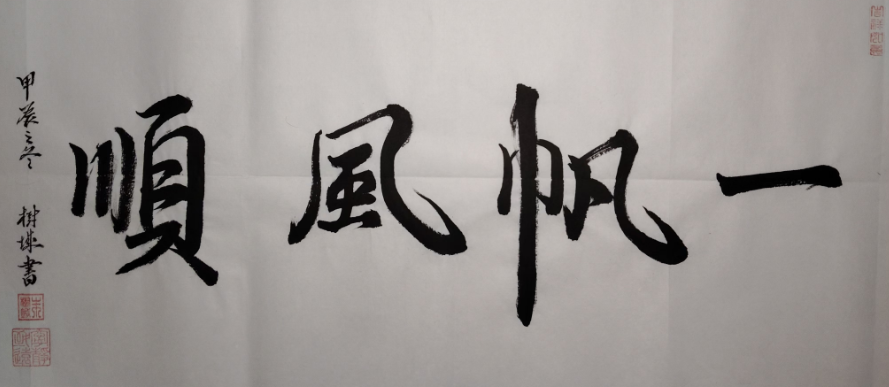 一帆風順
甲辰之冬 樹城書